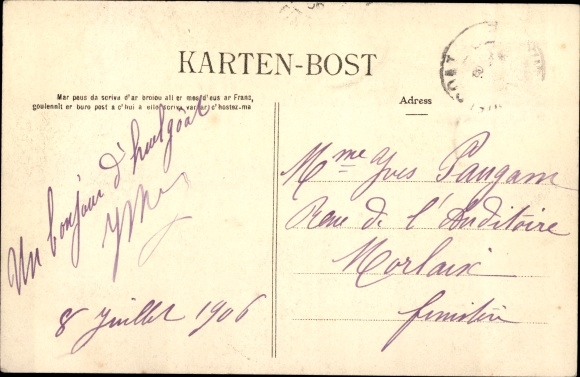 KARTEN-BOST
Mar peus da scriva d'ar broiou all er mes d'eus ar Franç,
goulennit er buro post a c'hui a elle scriva var ar c'hostez-ma
Adress
Un bonjour d'huelgoat
8 Juillet 1906
Mme Yves Paugam
Rue de l'Auditoire
Morlaix
finistère